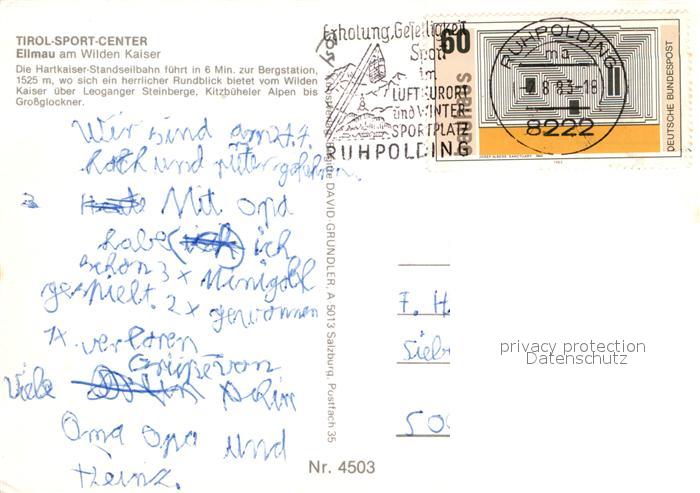 TIROL-SPORT-CENTER
Ellmau am Wilden Kaiser
Die Hartkaiser-Standseilbahn führt in 6 Min. zur Bergstation,
1525 m, wo sich ein herrlicher Rundblick bietet vom Wilden
Kaiser über Leoganger Steinberge, Kitzbüheler Alpen bis
Großglockner.
Erholung, Geselligkeit
Sport
im
LUFTKURORT
und WINTER-
SPORTPLATZ
RUHPOLDING
60
DEUTSCHE BUNDESPOST
RUHPOLDING
ma
8.83-18
8222
Wir sind am
hoch und runter gefahren.
Mit Opa
habe ich
schon 3 x Minigolf
gespielt. 2 x gewonnen
1x verloren
Viele Grüße von
Oma Opa und
Heinz.
DAVID GRÜNDLER, A 5013 Salzburg, Postfach 35
Nr. 4503
7. H
Sieb
50
privacy protection
Datenschutz